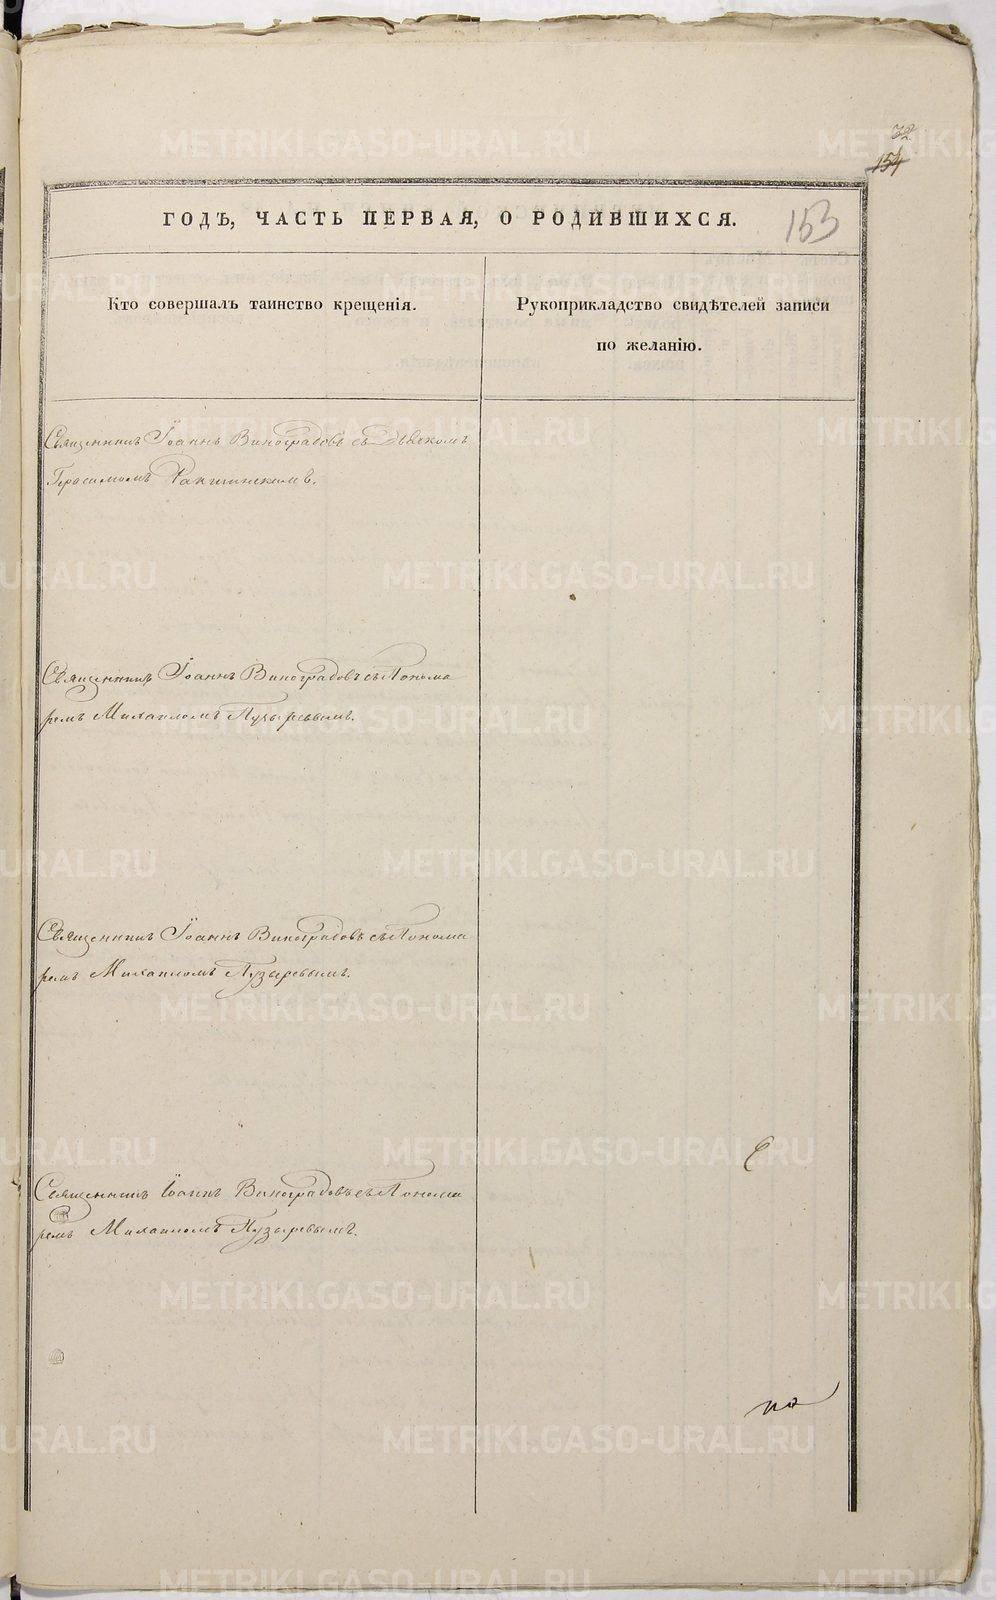 32
154
153
ГОДЪ, ЧАСТЬ ПЕРВАЯ, О РОДИВШИХСЯ.
Кто совершалъ таинство крещенія.
Рукоприкладство свидѣтелей записи
по желанію.
Священникъ Іоаннъ Виноградовъ съ Дьякомъ
Герасимомъ
Священникъ Іоаннъ Виноградовъ съ Понома
ремъ Михаиломъ Пузыревымъ.
Священникъ Іоаннъ Виноградовъ съ Понома
ремъ Михаиломъ Пузыревымъ.
Священникъ Іоаннъ Виноградовъ съ Понома
ремъ Михаиломъ Пузыревымъ.
по
METRIKI.GASO-URAL.RU